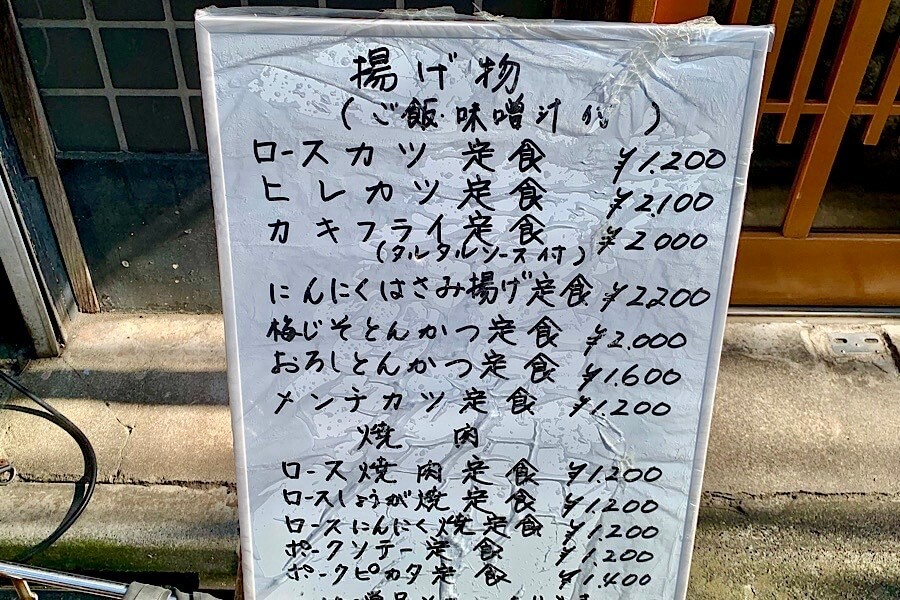 揚げ物
(ご飯・味噌汁付)
ロースカツ定食 ¥1.200
ヒレカツ定食 ¥2.100
カキフライ定食 ¥2000
(タルタルソース付)
にんにくはさみ揚げ定食 ¥2200
梅じそとんかつ定食 ¥2.000
おろしとんかつ定食 ¥1.600
メンチカツ定食 ¥1.200
焼肉
ロース焼肉定食 ¥1.200
ロースしょうが焼定食 ¥1.200
ロースにんにく焼定食 ¥1.200
ポークソテー定食 ¥1.200
ポークピカタ定食 ¥1.400